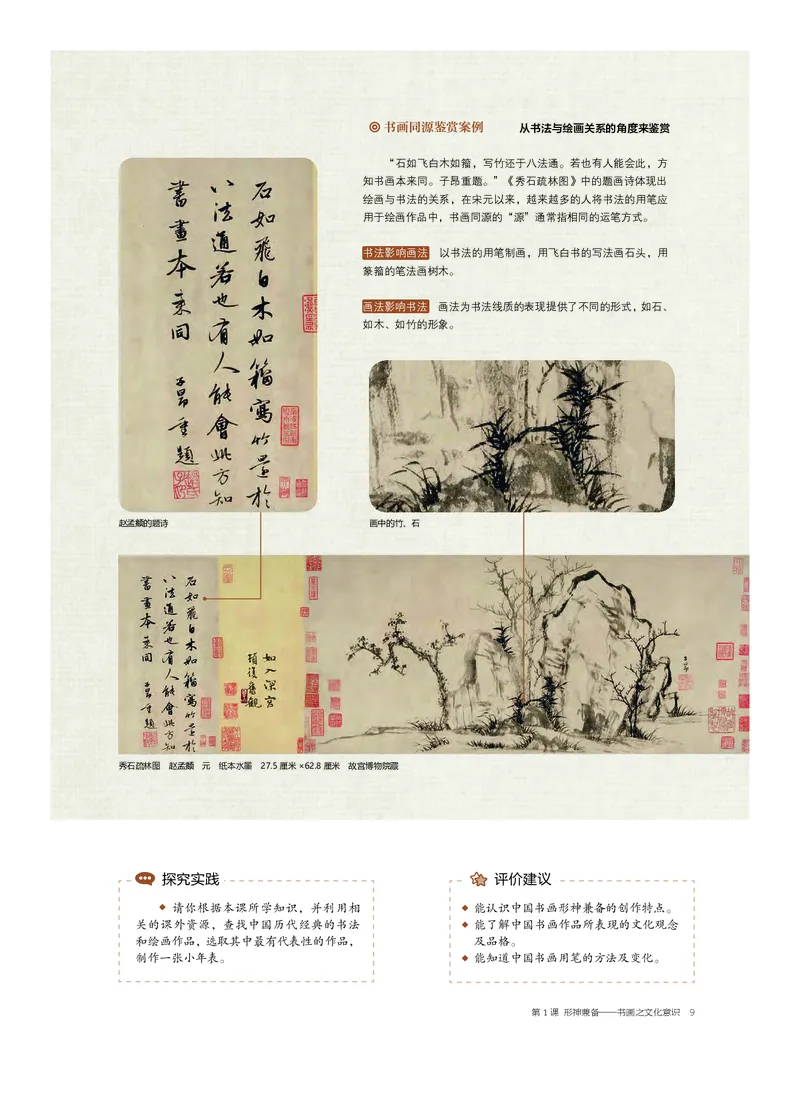 书画同源鉴赏案例 从书法与绘画关系的角度来鉴赏
“石如飞白木如籀，写竹还于八法通。若也有人能会此，方
知书画本来同。子昂重题。”《秀石疏林图》中的题画诗体现出
绘画与书法的关系，在宋元以来，越来越多的人将书法的用笔应
用于绘画作品中，书画同源的“源”通常指相同的运笔方式。
书法影响画法 以书法的用笔制画，用飞白书的写法画石头，用
篆籀的笔法画树木。
画法影响书法 画法为书法线质的表现提供了不同的形式，如石、
如木、如竹的形象。
石如飛白木如籀寫竹還於
八法通若也有人能會此方知
書畫本來同
子昂重題
赵孟頫的题诗
画中的竹、石
石如飛白木如籀寫竹還於
八法通若也有人能會此方知
書畫本來同
子昂重題
如入深宮
頓復舊觀
子昂
秀石疏林图 赵孟頫 元 纸本水墨 27.5 厘米 ×62.8 厘米 故宫博物院藏
探究实践
请你根据本课所学知识，并利用相
关的课外资源，查找中国历代经典的书法
和绘画作品，选取其中最有代表性的作品，
制作一张小年表。
评价建议
能认识中国书画形神兼备的创作特点。
能了解中国书画作品所表现的文化观念
及品格。
能知道中国书画用笔的方法及变化。
第 1 课 形神兼备——书画之文化意识 9